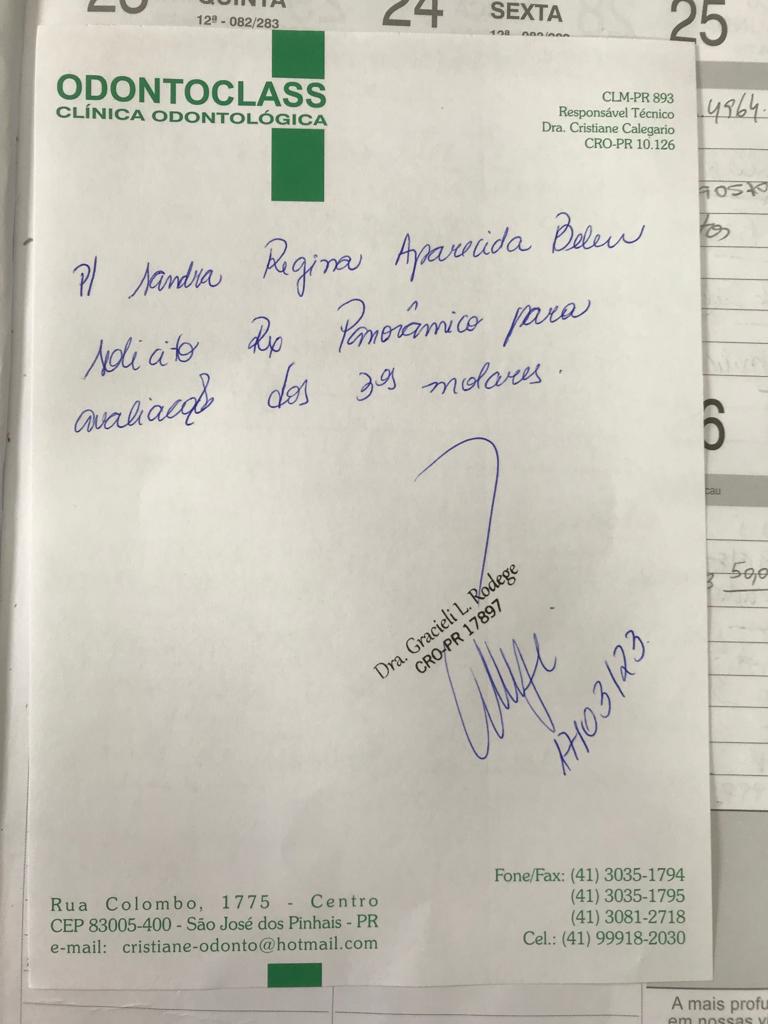 QUINTA
12ª - 082/283
24
SEXTA
25
ODONTOCLASS
CLÍNICA ODONTOLÓGICA
CLM-PR 893
Responsável Técnico
Dra. Cristiane Calegario
CRO-PR 10.126
4964
P/ Sandra Regina Aparecida Belew
solicito Rx Panorâmico para
avaliação dos 3ºs molares.
6
50,0
Dra. Gracieli L. Rodege
CRO-PR 17897
17/03/23.
Fone/Fax: (41) 3035-1794
(41) 3035-1795
(41) 3081-2718
Cel.: (41) 99918-2030
Rua Colombo, 1775 - Centro
CEP 83005-400 - São José dos Pinhais - PR
e-mail: cristiane-odonto@hotmail.com
A mais profu
em nossas v